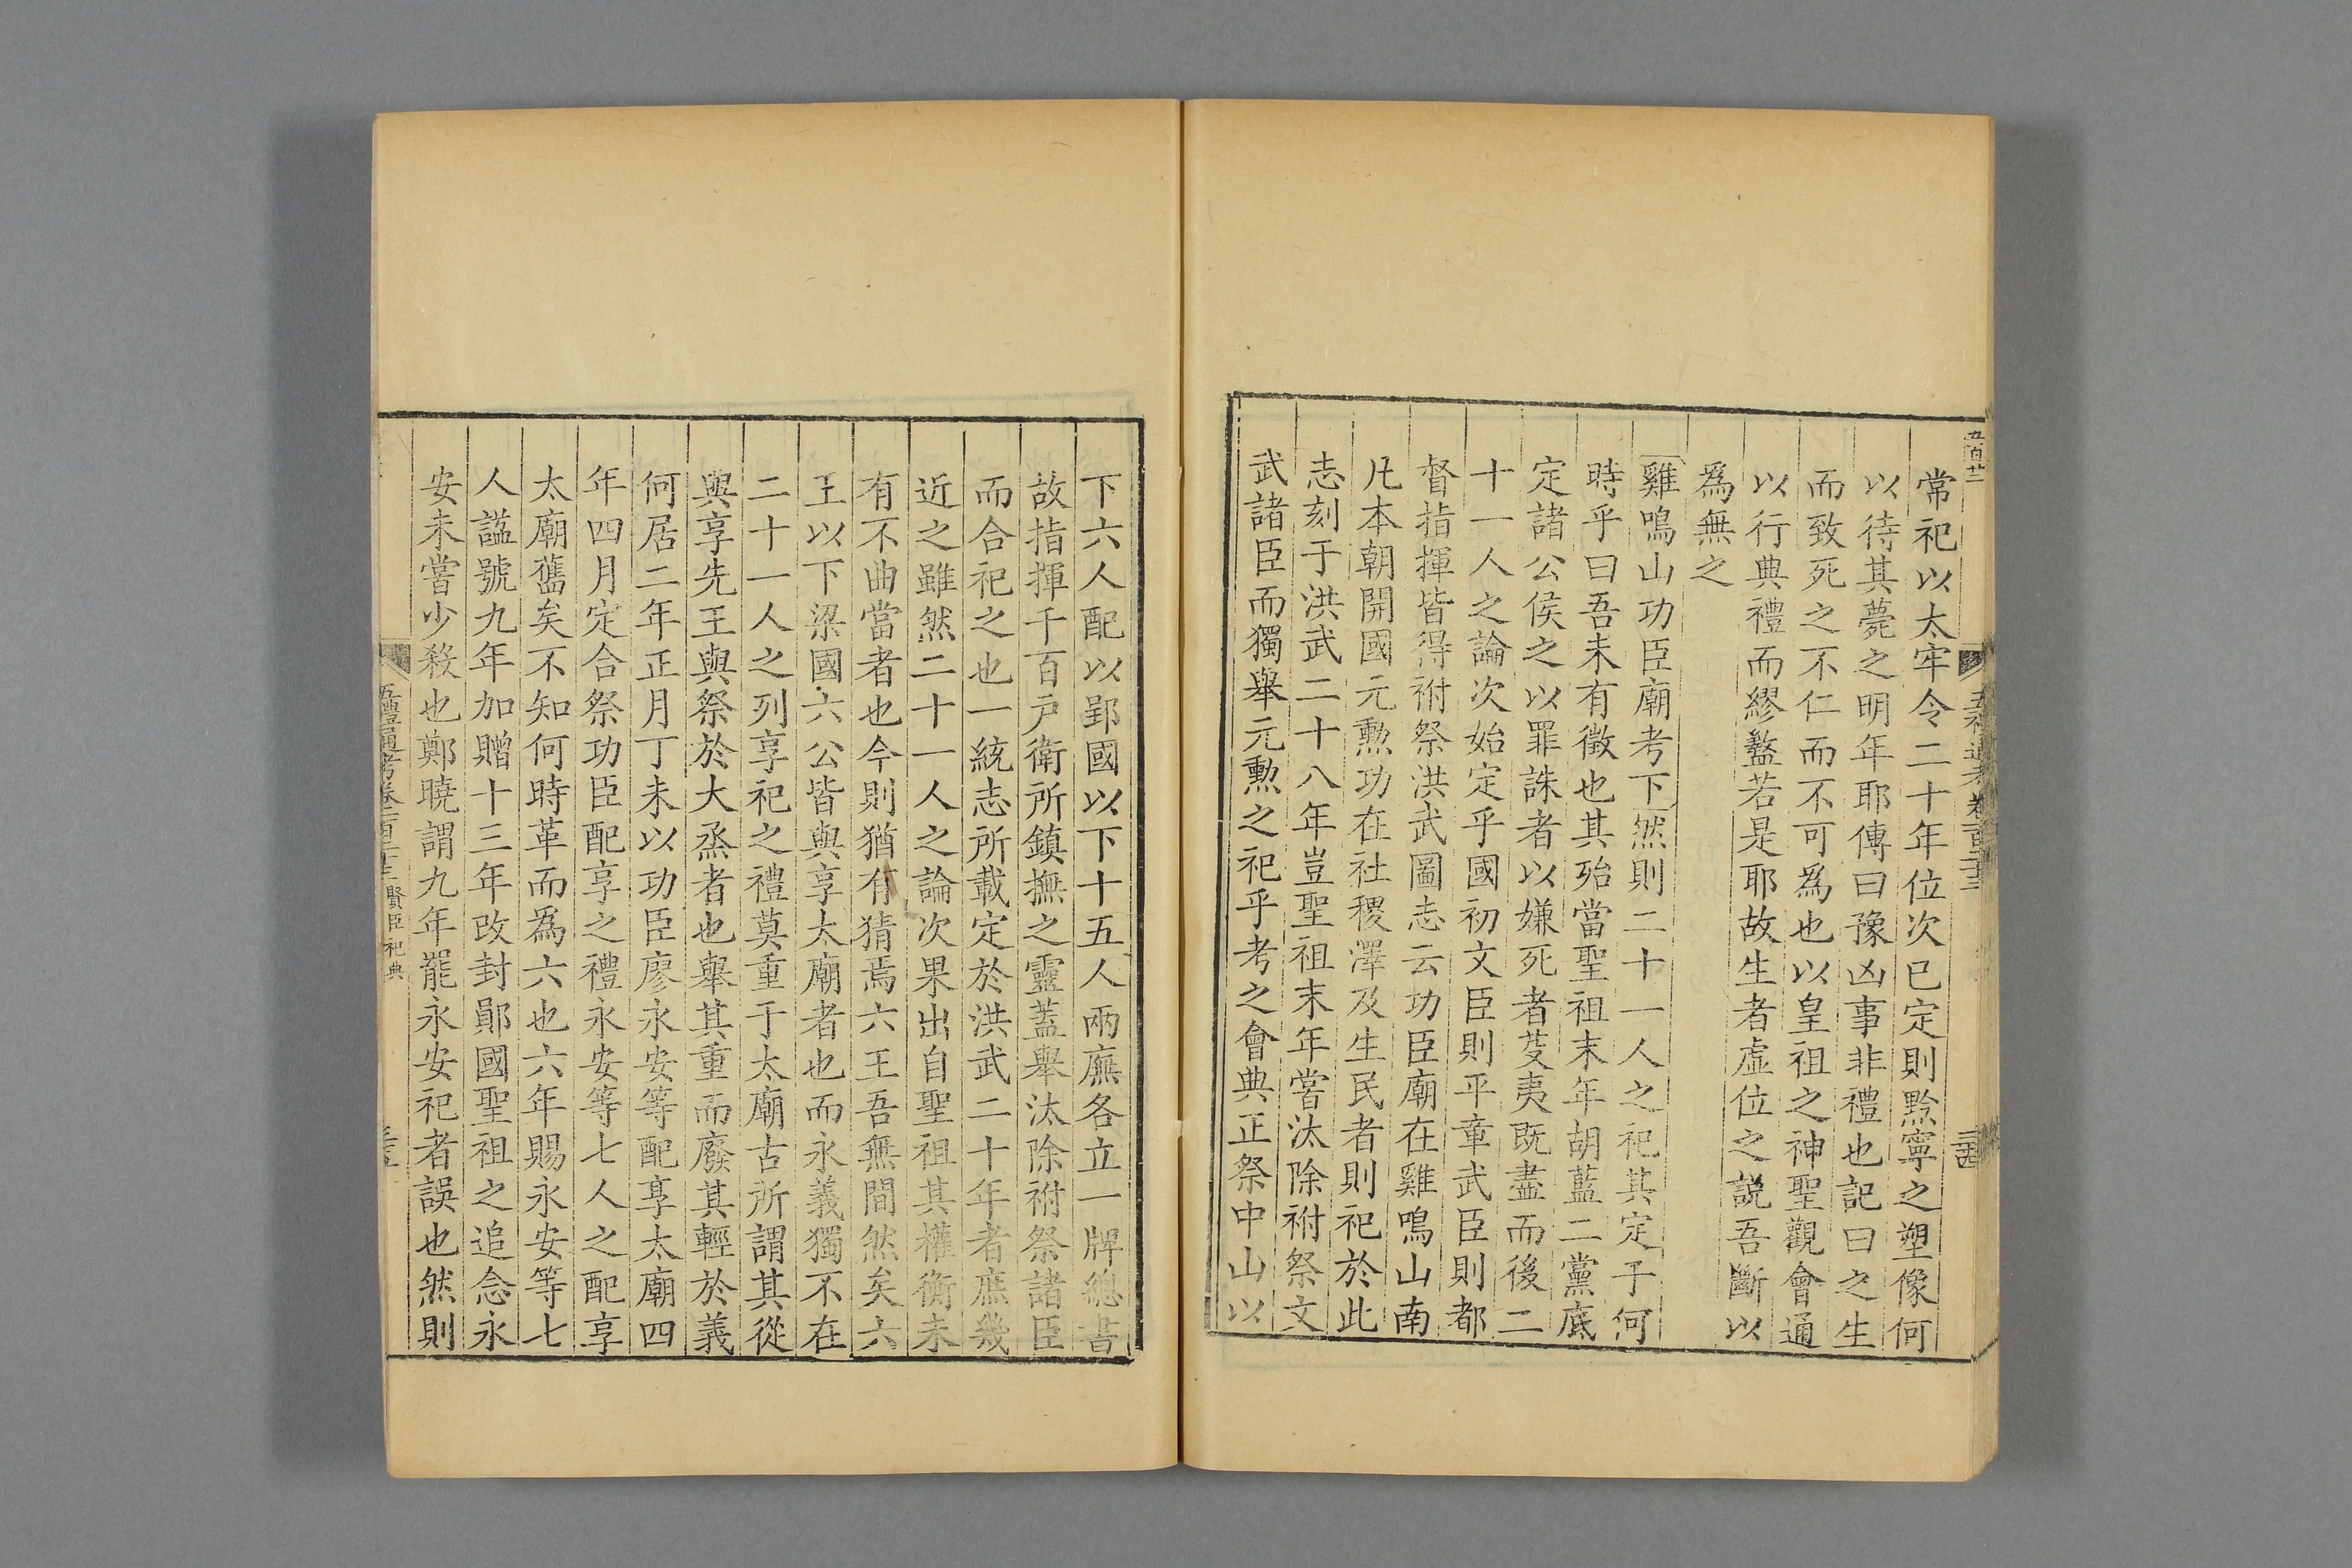 常祀以太牢令二十年位次已定則黔寧之塑像何
以待其薨之明年耶傳曰豫凶事非禮也記曰之生
而致死之不仁而不可爲也以皇祖之神聖觀會通
以行典禮而繆盭若是耶故生者虛位之説吾斷以
爲無之
雞鳴山功臣廟考下然則二十一人之祀其定于何
時乎曰吾未有徵也其殆當聖祖末年胡藍二黨底
定諸公侯之以罪誅者以嫌死者芟夷既盡而後二
十一人之論次始定乎國初文臣則平章武臣則都
督指揮皆得祔祭洪武圖志云功臣廟在雞鳴山南
凡本朝開國元勲功在社稷澤及生民者則祀於此
志刻于洪武二十八年豈聖祖末年嘗汰除祔祭文
武諸臣而獨舉元勲之祀乎考之會典正祭中山以
下六人配以郢國以下十五人兩廡各立一牌總書
故指揮千百户衛所鎮撫之靈蓋舉汰除祔祭諸臣
而合祀之也一統志所載定於洪武二十年者庶幾
近之雖然二十一人之論次果出自聖祖其權衡未
有不曲當者也今則猶有猜焉六王吾無間然矣六
王以下梁國六公皆與享太廟者也而永義獨不在
二十一人之列享祀之禮莫重于太廟古所謂其從
與享先王與祭於大烝者也舉其重而廢其輕於義
何居二年正月丁未以功臣廖永安等配享太廟四
年四月定合祭功臣配享之禮永安等七人之配享
太廟舊矣不知何時革而爲六也六年賜永安等七
人諡號九年加贈十三年改封鄖國聖祖之追念永
安未嘗少殺也鄭曉謂九年罷永安祀者誤也然則
五禮通考卷一百二十三 賢臣祀典